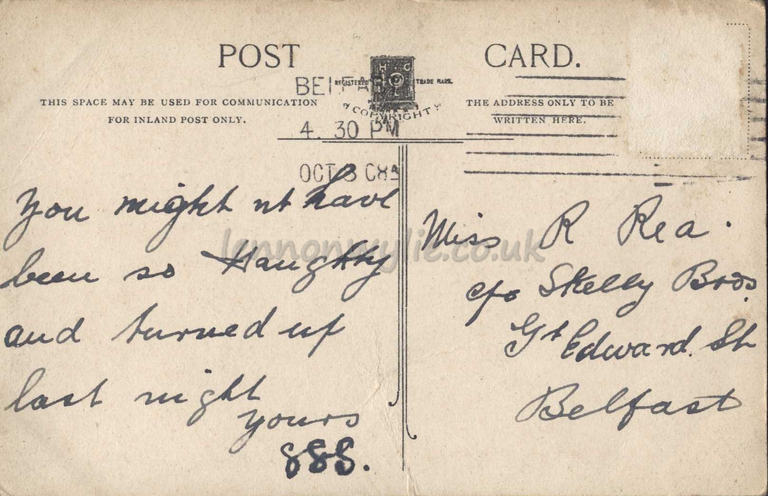 POST CARD.
BELFAST
REGISTERED H.G TRADE MARK.
COPYRIGHT
THIS SPACE MAY BE USED FOR COMMUNICATION
FOR INLAND POST ONLY.
THE ADDRESS ONLY TO BE
WRITTEN HERE.
4. 30 PM
OCT 3
You might nt have
been so Haughty
and turned up
last night
yours
SSS.
lennonwylie.co.uk
Miss R Rea.
c/o Skelly Bros
Gt Edward. St
Belfast